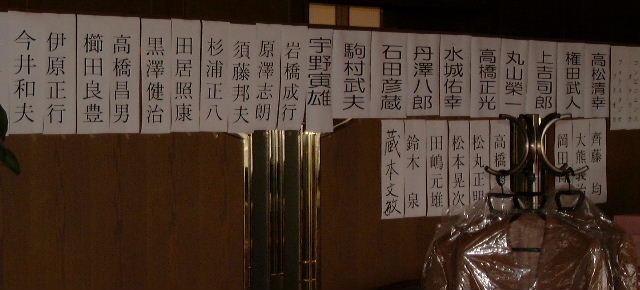 高松清幸
権田武人
上吉司郎
丸山榮一
高橋正光
水城佑幸
丹澤八郎
石田彦蔵
駒村武夫
宇野寅雄
岩橋成行
原澤志朗
須藤邦夫
杉浦正八
田居照康
黒澤健治
高橋昌男
櫛田良豊
伊原正行
今井和夫
齊藤均
大熊
岡田
高橋
松丸正明
松本晃次
田嶋元雄
鈴木泉
蔵本文敏